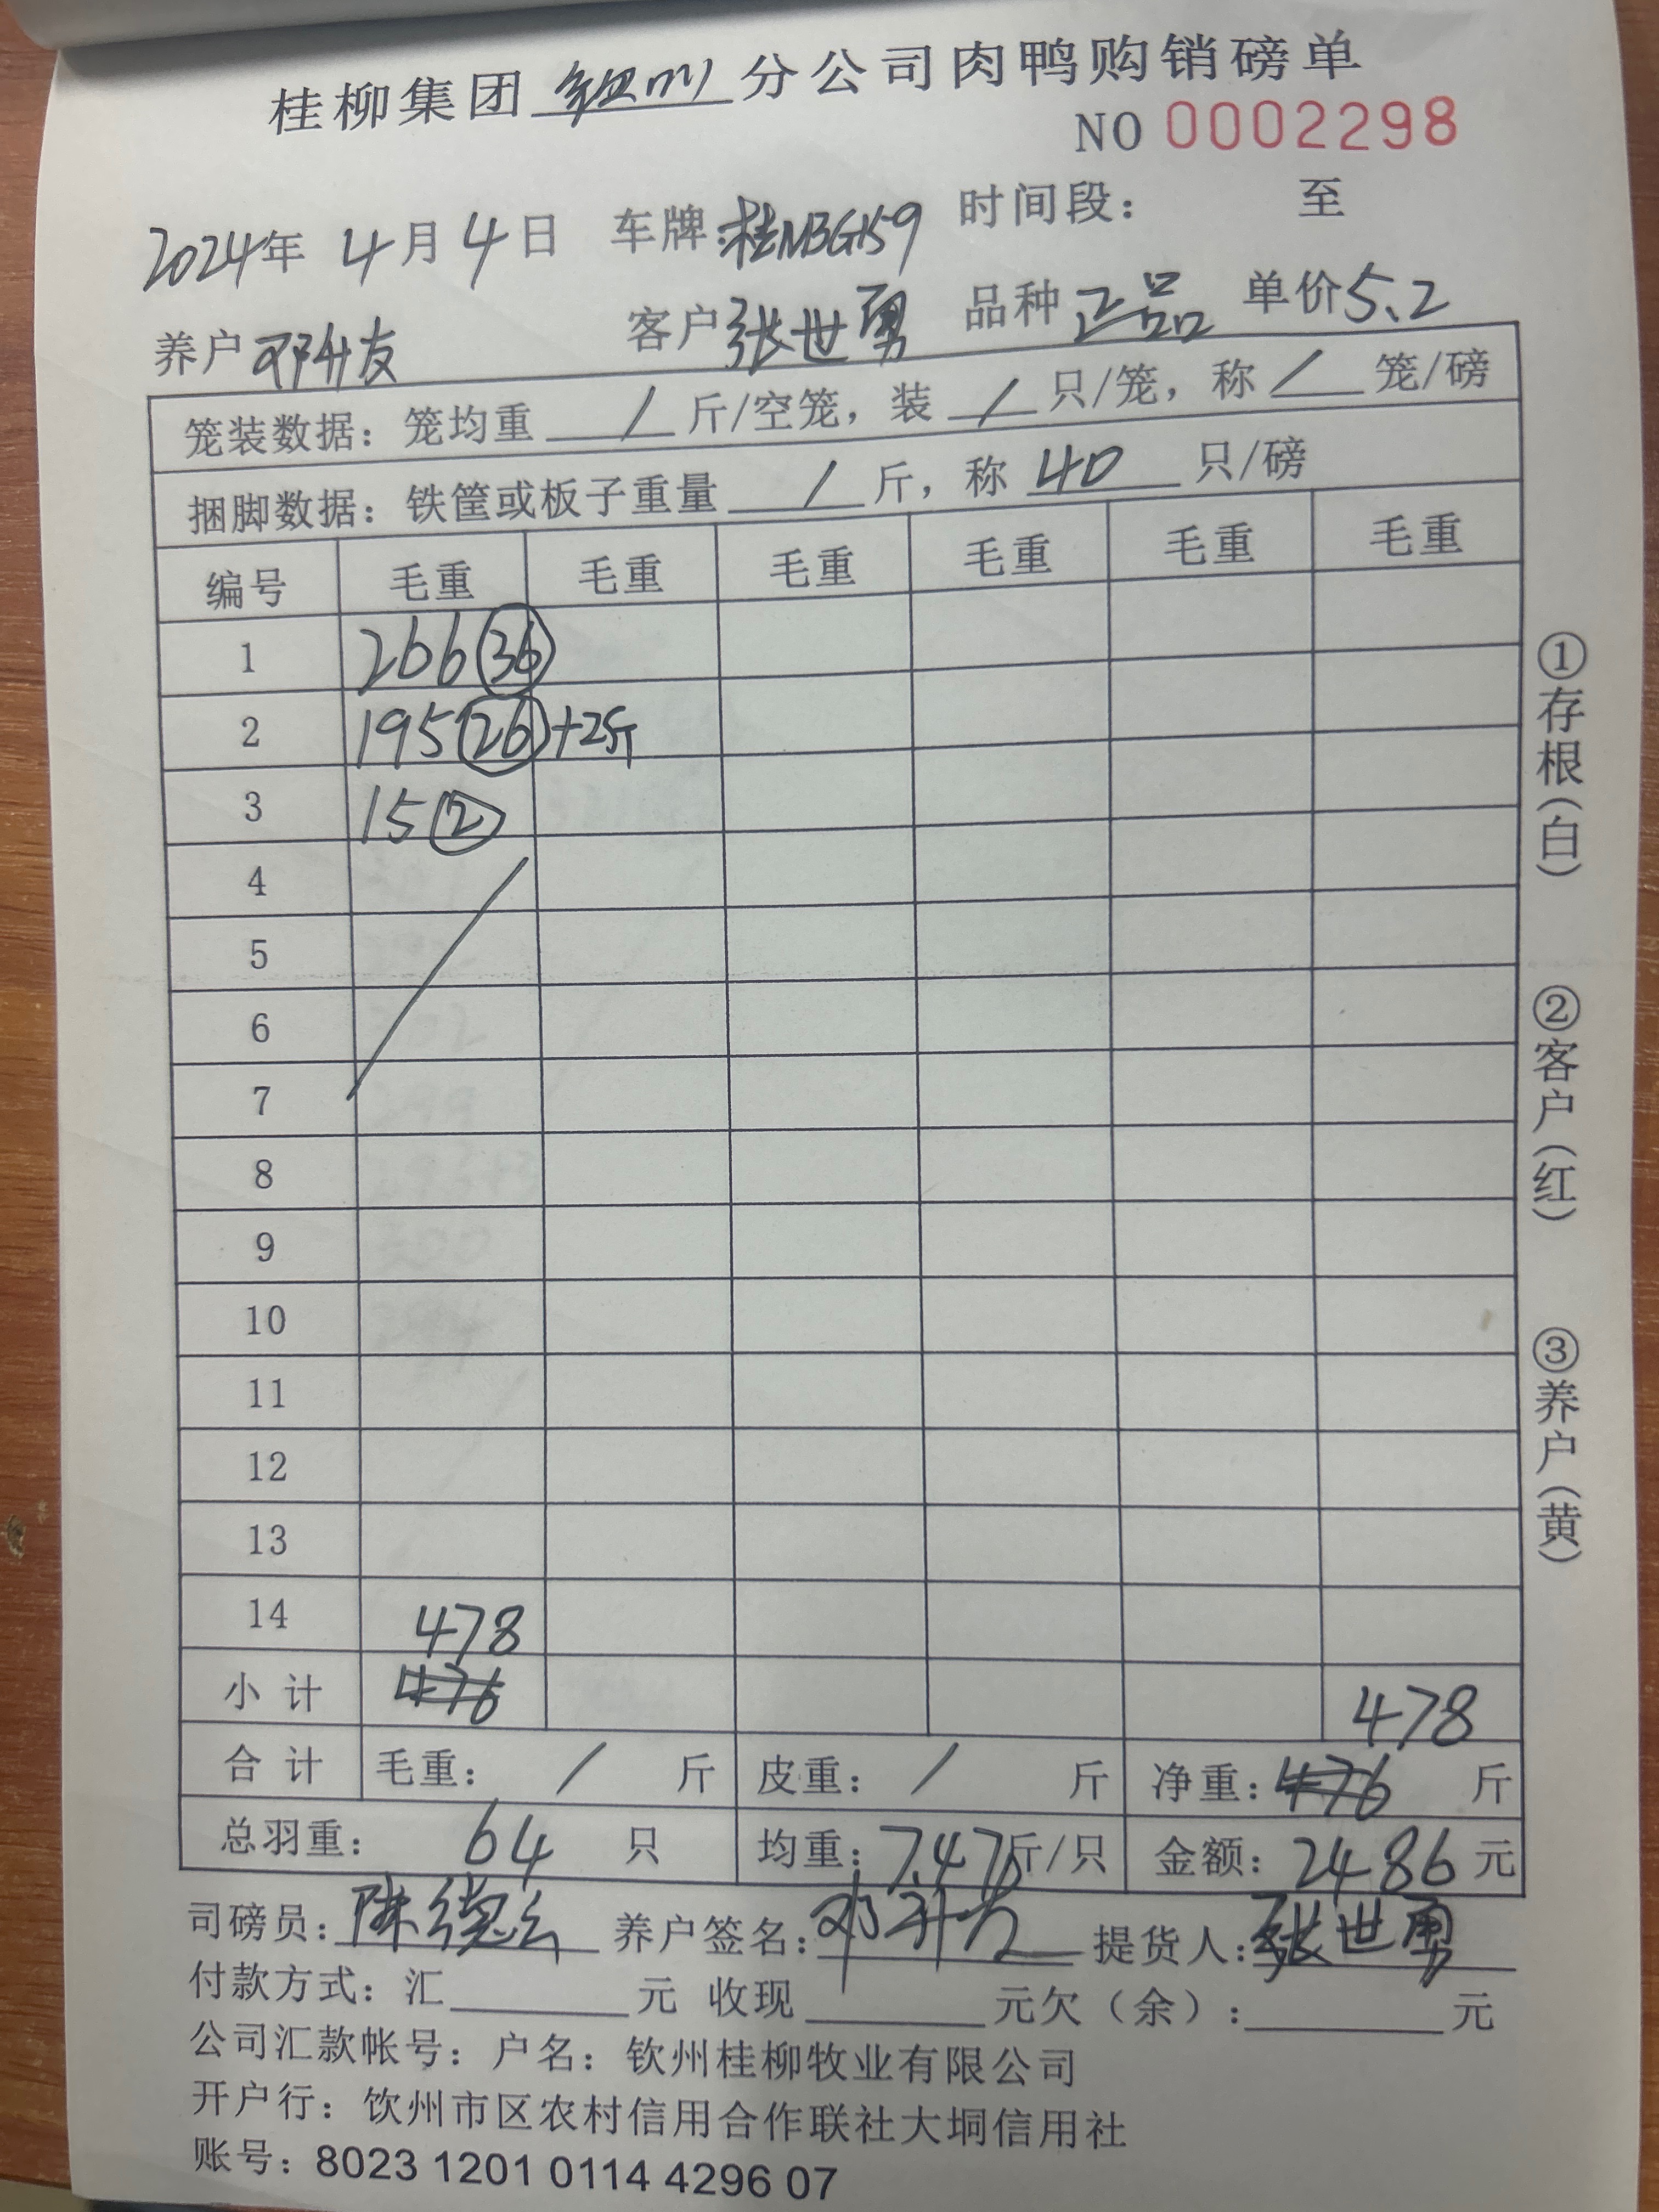 桂柳集团 钦州 分公司肉鸭购销磅单
NO 0002298
2024年 4月4日 车牌:桂NBG159 时间段: 至
养户 邓升友 客户 张世勇 品种 正品 单价5.2
笼装数据: 笼均重 / 斤/空笼, 装 / 只/笼, 称 / 笼/磅
捆脚数据: 铁筐或板子重量 / 斤, 称 40 只/磅
编号 毛重 毛重 毛重 毛重 毛重 毛重
1 266 (36)
2 195 (26)+2斤
3 15 (2)
4
5
6
7
8
9
10
11
12
13
14 478
小计 476 478
合计 毛重: / 斤 皮重: / 斤 净重: 476 斤
总羽重: 64 只 均重: 7.47斤/只 金额: 2486 元
司磅员: 陈德云 养户签名: 邓升友 提货人: 张世勇
付款方式: 汇 元 收现 元欠(余): 元
公司汇款帐号: 户名: 钦州桂柳牧业有限公司
开户行: 钦州市区农村信用合作联社大垌信用社
账号: 8023 1201 0114 4296 07
①存根(白)
②客户(红)
③养户(黄)